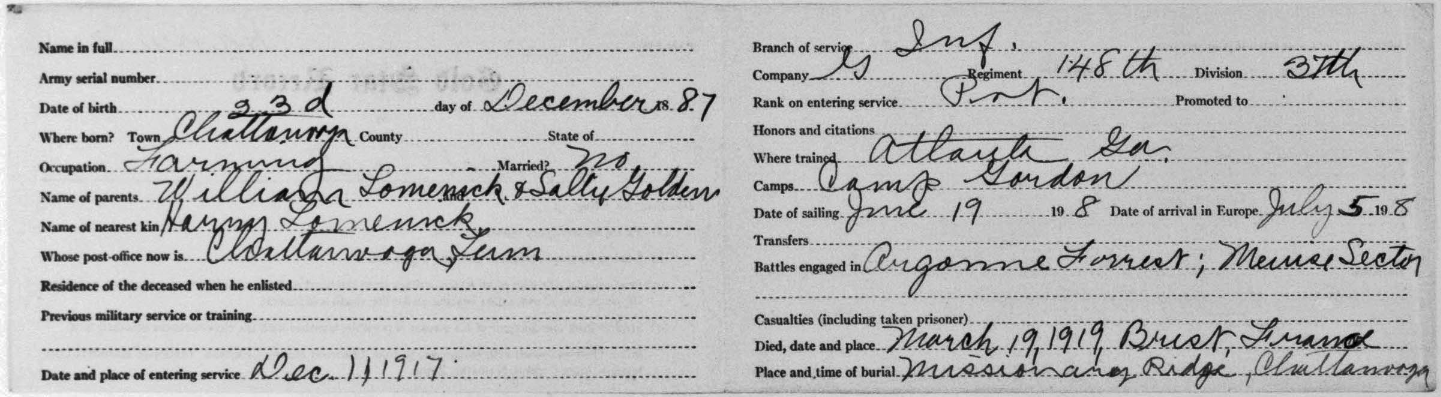 Name in full
Army serial number
Date of birth 23d day of December 1887
Where born? Town Chattanooga County State of
Occupation Farming Married? No
Name of parents William Lomenick & Sally Golden
Name of nearest kin Harny Lomenick
Whose post-office now is Chattanooga, Tenn
Residence of the deceased when he enlisted
Previous military service or training
Date and place of entering service Dec. 11, 1917
Branch of service Inf.
Company G Regiment 148th Division 37th
Rank on entering service Pvt. Promoted to
Honors and citations
Where trained Atlanta Ga.
Camps Camp Gordon
Date of sailing June 19 1918 Date of arrival in Europe July 5 1918
Transfers
Battles engaged in Argonne Forrest; Meuse Sector
Casualties (including taken prisoner)
Died, date and place March 19, 1919, Brest, France
Place and time of burial Missionary Ridge, Chattanooga